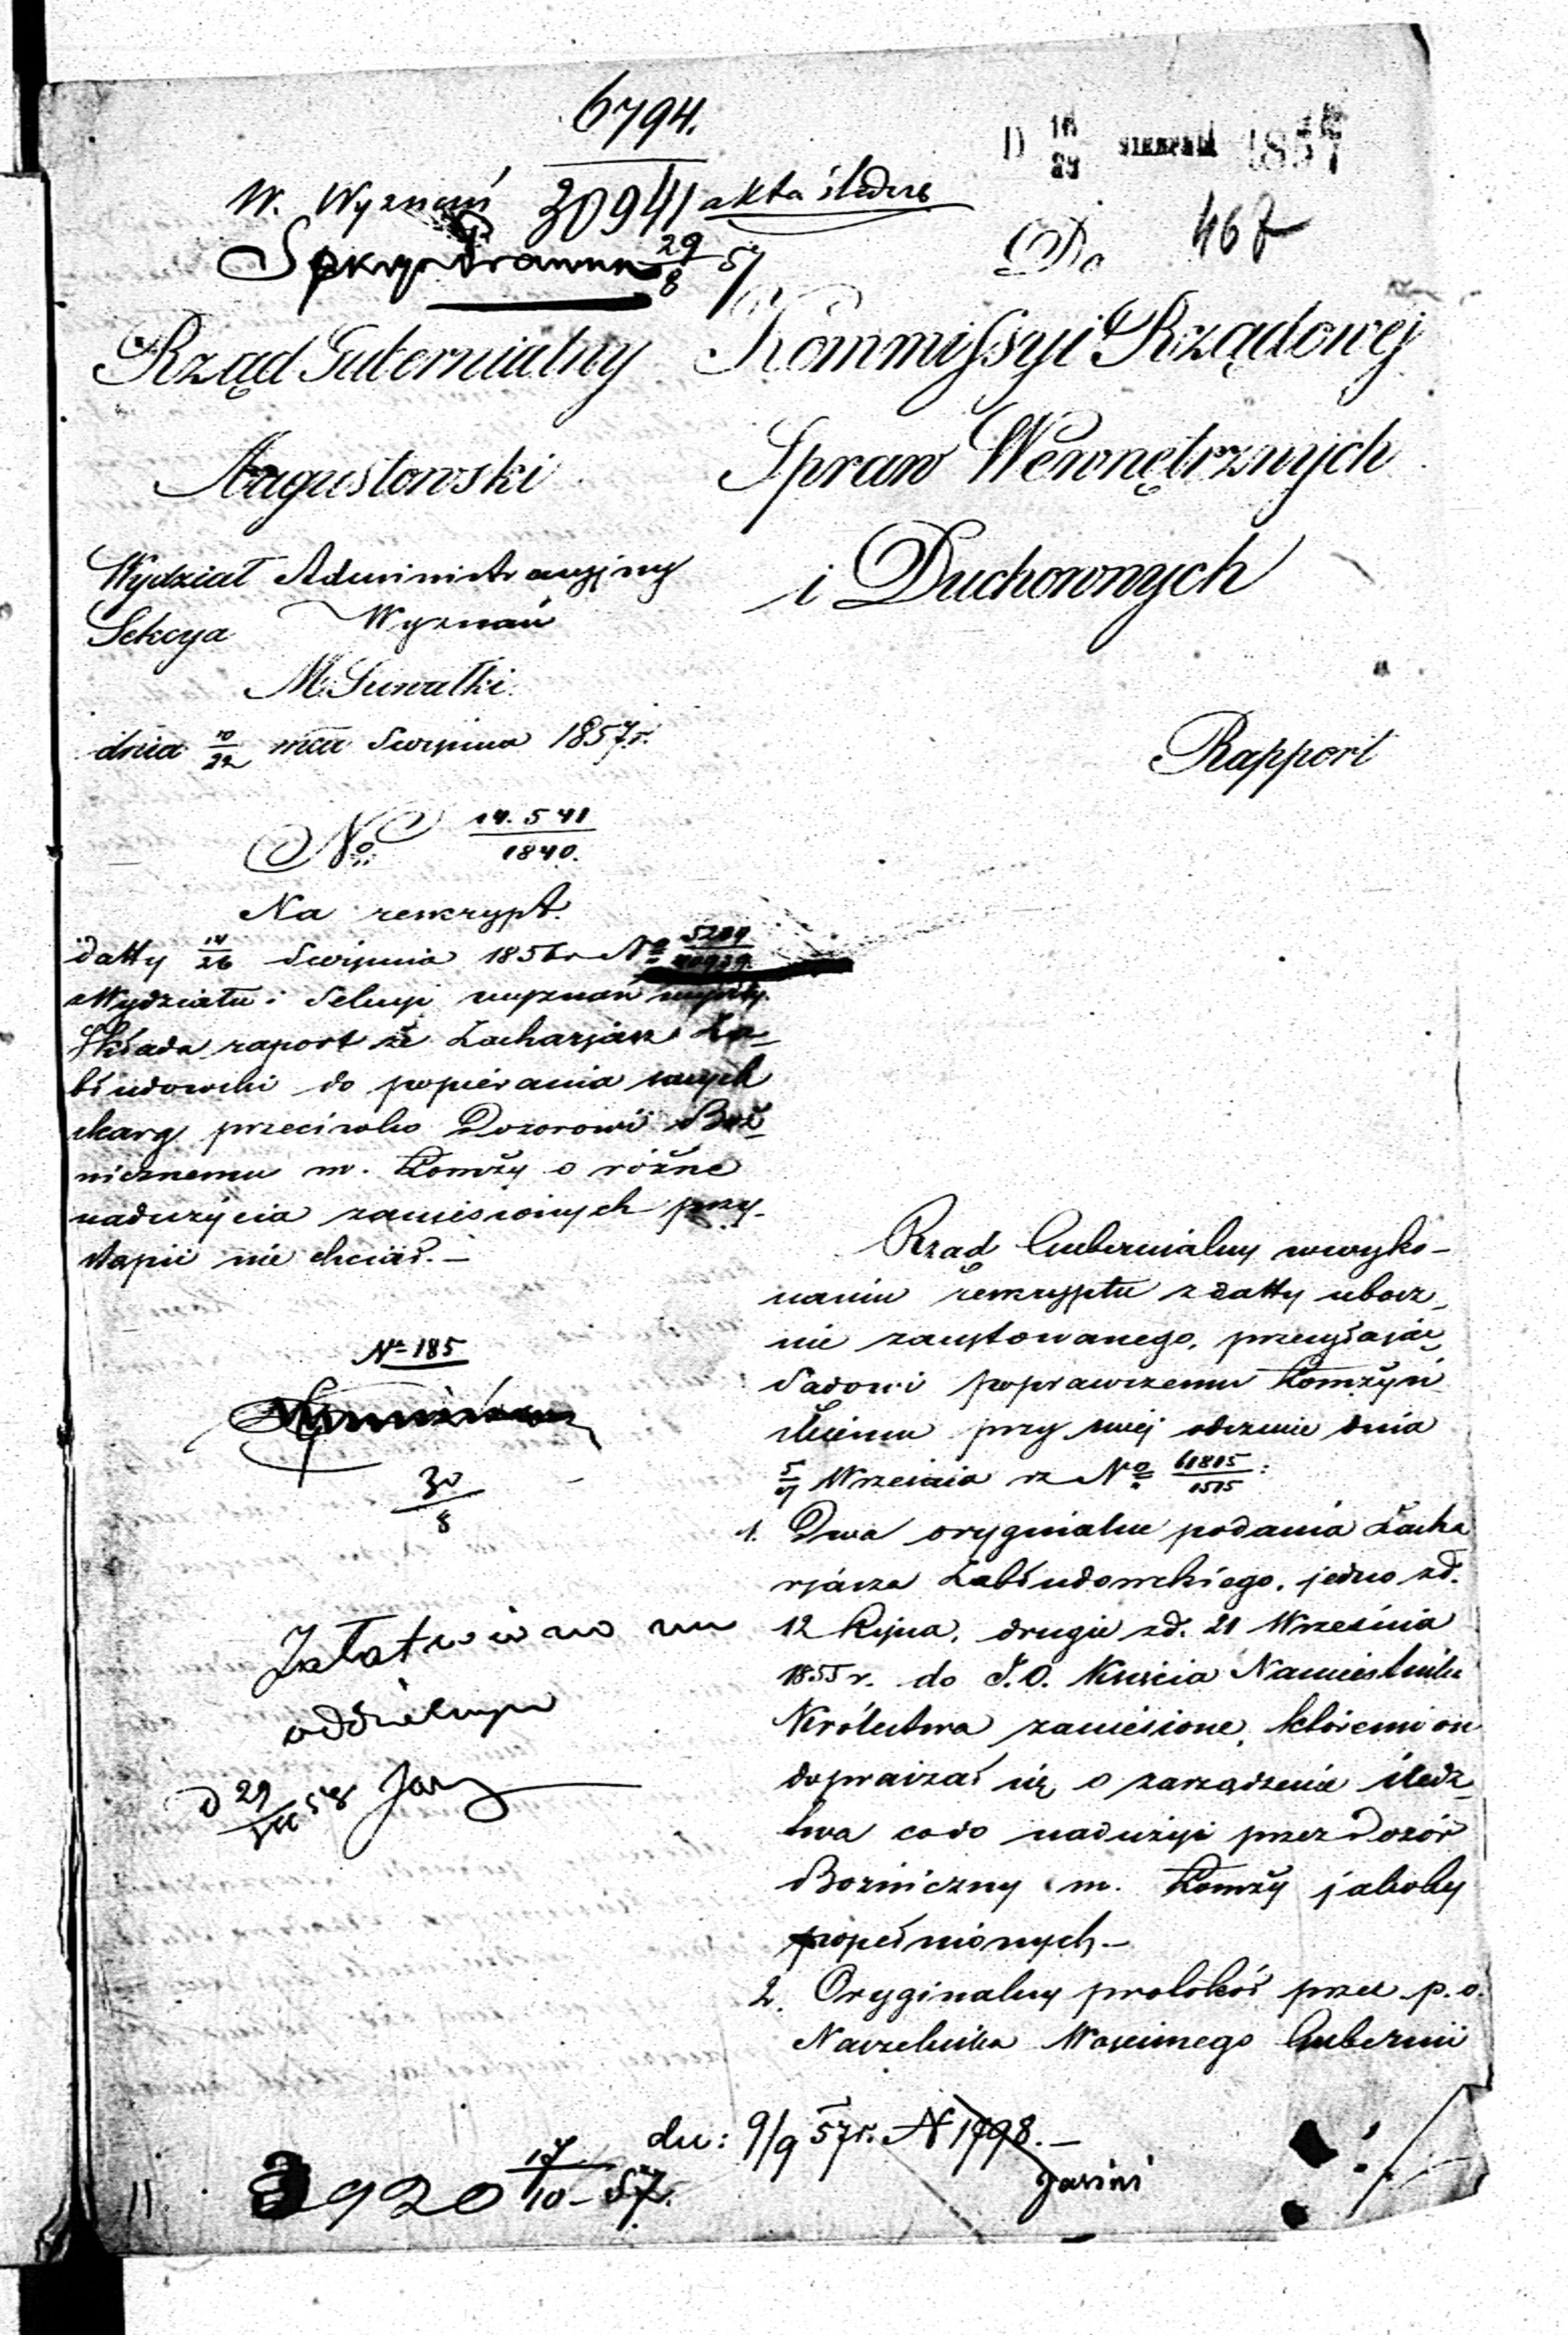 6794.
D 16/28 SIERPNIA 1857
W. Wyznań 30941 akta śledcze
29/8 57
Do 467
Rząd Gubernialny
Augustowski
Kommissyi Rządowej
Spraw Wewnętrznych
i Duchownych
Wydział Administracyjny
Sekcya Wyznań
M. Suwałki.
dnia 10/22 mca Sierpnia 1857 r.
Rapport
No. 14.541/1840.
Na reskrypt.
datty 14/26 Sierpnia 1856 r No
z Wydziału i Sekcyi wyznań
Składa raport że Zacharjasz Za-
błudowski do popierania swych
skarg przeciwko Dozorowi Boż-
nicznemu m. Łomży o różne
nadużycia zaniesionych przy-
stąpić nie chciał. —
No 185
30/8
Załatwiono na
oddzielnym
d 29 58
Rząd Gubernialny w wyko-
naniu reskryptu z datty ubocz-
nie zacytowanego, przesyłając
Sądowi poprawczemu Łomżyń
skiemu przy swej odezwie dnia
5/17 Września rz No 61815/1515:
1. Dwa oryginalne podania Zacha
rjasza Zabłudowskiego, jedno zd.
12 Lipca, drugie zd. 21 Września
1855 r. do J.O. Księcia Namiestnika
Królestwa zaniesione, któremi on
dopraszał się o zarządzenie śledz-
twa co do nadużyć przez Dozór
Bożniczny m. Łomży jakoby
popełnionych. —
2. Oryginalny protokół przez p.o.
Naczelnika Wojennego Gubernii
dn: 9/9 57 r. N 1798. —
3920 17/10 - 57.
11.